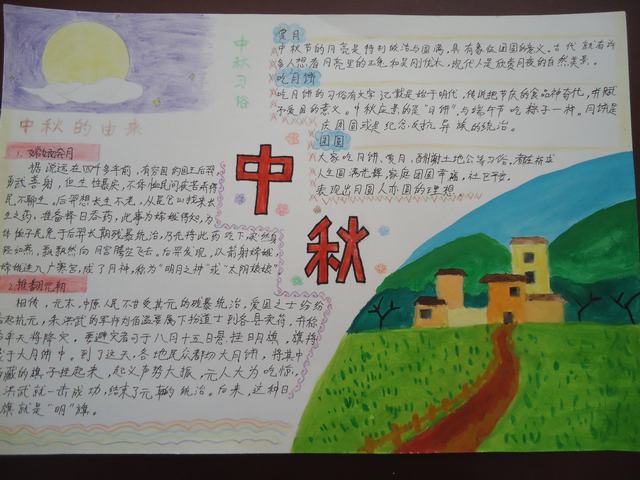 中秋的由来
1、嫦娥奔月
据说远在四千多年前，有穷国的国王后羿
勇武善射，但生性暴戾，不体恤民间疾苦而使
民不聊生。后羿想长生不老，从昆仑山找来长
生之药，准备择日吞药，此事为嫦娥得知，为
恤子民免于后羿长期残暴统治，乃先将此药吃下，突然身
轻如燕，飘飘然向月宫腾空飞去。后羿发现，以箭射嫦娥，
嫦娥进入广寒宫，成了月神，称为“明月之神”或“太阴娘娘”
2、推翻元朝
相传，元末，中原人民不甘受其元的残暴统治，爱国之士纷纷
起抗元，朱洪武的军师刘伯温要属下扮道士到各县卖符，并称
天将降灾，要避灾者可于八月十五日悬挂日月旗，旗将
于大月饼中，到了这天，各地民众都切大月饼，将其中
藏的旗子挂起来，起义声势大振，元人大为吃惊，
洪武就一击成功，结束了元朝的统治。后来，这种日
旗就是“明”旗。
中秋习俗
赏月
中秋节的月亮是特别皎洁与圆满，具有象征团圆的意义。古代就有许
多人想看月亮里的玉兔和吴刚伐木，现代人是欣赏月夜的自然美景。
吃月饼
吃月饼的习俗有文字记载是始于明代，传说把节庆的食品神奇化，并赋
予爱国的意义。中秋应景的是“月饼”，与端午节吃粽子一样。月饼是
庆团圆或是纪念反抗异族的统治。
团圆
大家吃月饼、赏月、酬谢土地公等习俗，都在祈求
人生圆满光辉，家庭团圆幸福，社会平安，
表现出月圆人亦圆的理想。
中秋